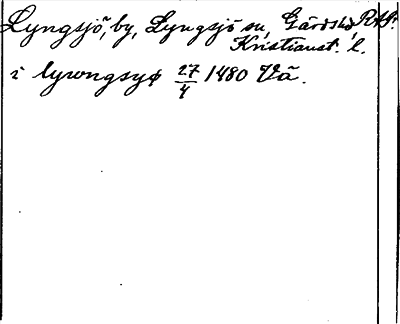 Lyngsjö, by, Lyngsjö sn, Gärds hd
Kristianst. l.
i lywngsyø 27/4 1480 Vä.